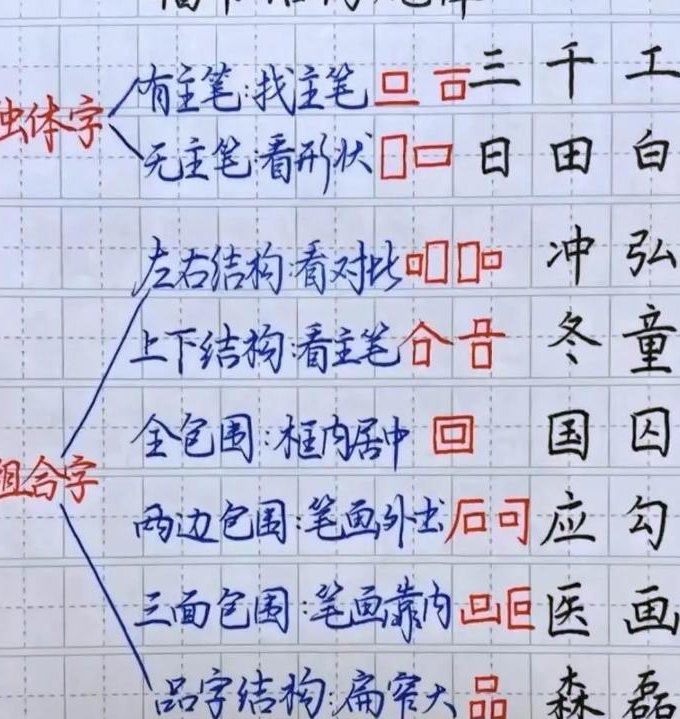 独体字
有主笔:找主笔 三 千 工
无主笔:看形状 日 田 白
左右结构:看对比 冲 弘
上下结构:看主笔 冬 童
全包围:框内居中 国 囚
组合字
两边包围:笔画外出 应 勾
三面包围:笔画靠内 医 画
品字结构:扁窄大 森 磊